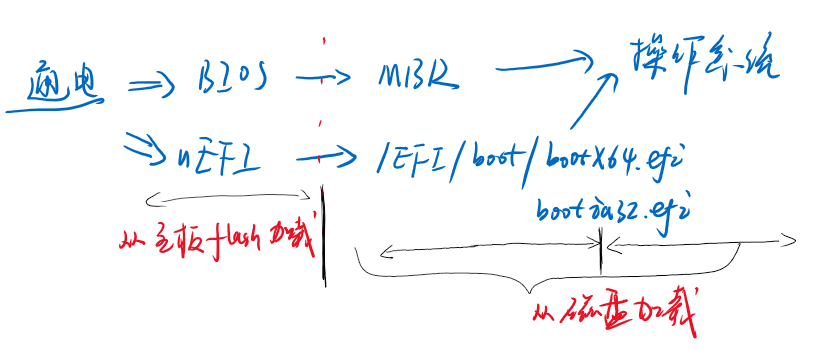 通电 ⇒ BIOS → MBR → 操作系统
⇒ uEFI → /EFI/boot/bootX64.efi
bootia32.efi
从主板flash加载
从磁盘加载